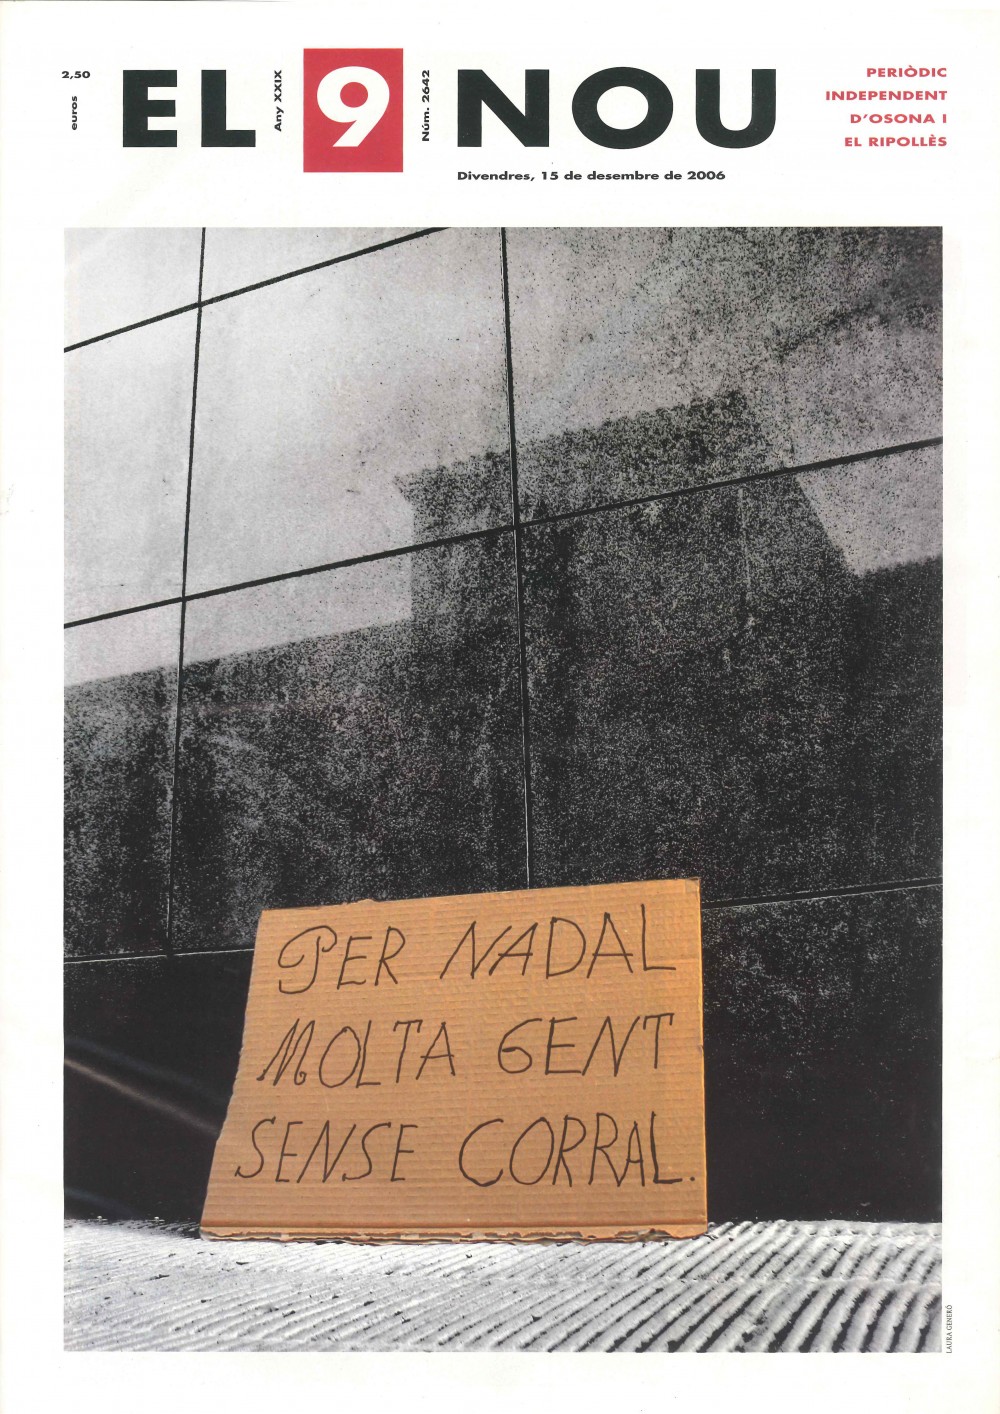 2,50
euros
EL 9 NOU
Any XXIX
Núm. 2642
PERIÒDIC
INDEPENDENT
D'OSONA I
EL RIPOLLÈS
Divendres, 15 de desembre de 2006
PER NADAL
MOLTA GENT
SENSE CORRAL.
LAURA GENERÓ